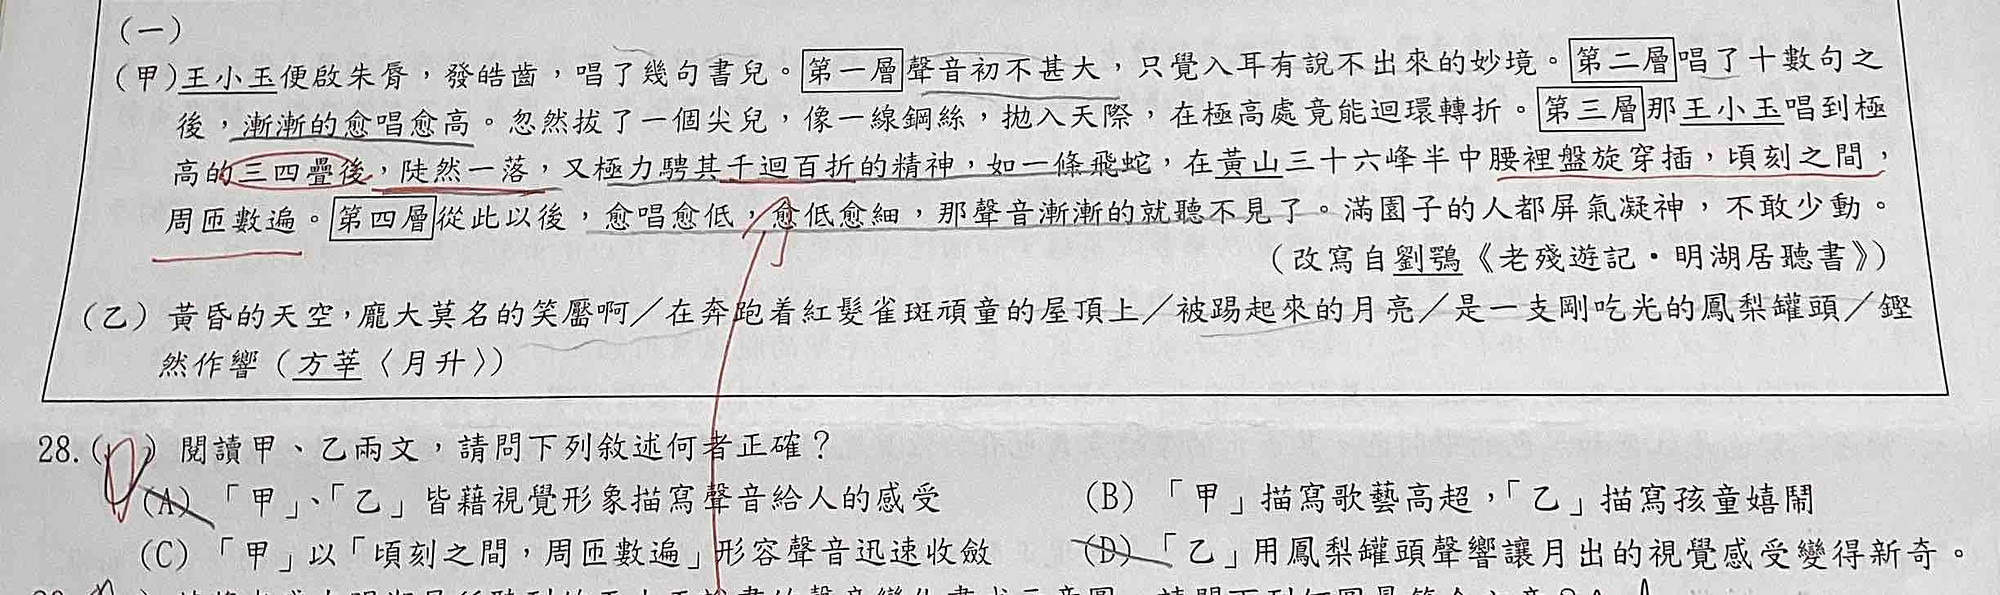 (一)
(甲)王小玉便啟朱脣，發皓齒，唱了幾句書兒。第一層聲音初不甚大，只覺入耳有說不出來的妙境。第二層唱了十數句之
後，漸漸的愈唱愈高。忽然拔了一個尖兒，像一線鋼絲，拋入天際，在極高處竟能迴環轉折。第三層那王小玉唱到極
高的三四疊後，陡然一落，又極力騁其千迴百折的精神，如一條飛蛇，在黃山三十六峰半中腰裡盤旋穿插，頃刻之間，
周匝數遍。第四層從此以後，愈唱愈低，愈低愈細，那聲音漸漸的就聽不見了。滿園子的人都屏氣凝神，不敢少動。
(改寫自劉鶚《老殘遊記・明湖居聽書》)
(乙) 黃昏的天空，龐大莫名的笑靨啊／在奔跑着紅髮雀斑頑童的屋頂上／被踢起來的月亮／是一支剛吃光的鳳梨罐頭／鏗
然作響（方莘〈月升〉）
28.(D) 閱讀甲、乙兩文，請問下列敘述何者正確？
(A) 「甲」、「乙」皆藉視覺形象描寫聲音給人的感受 (B) 「甲」描寫歌藝高超，「乙」描寫孩童嬉鬧
(C) 「甲」以「頃刻之間，周匝數遍」形容聲音迅速收斂 (D) 「乙」用鳳梨罐頭聲響讓月出的視覺感受變得新奇。